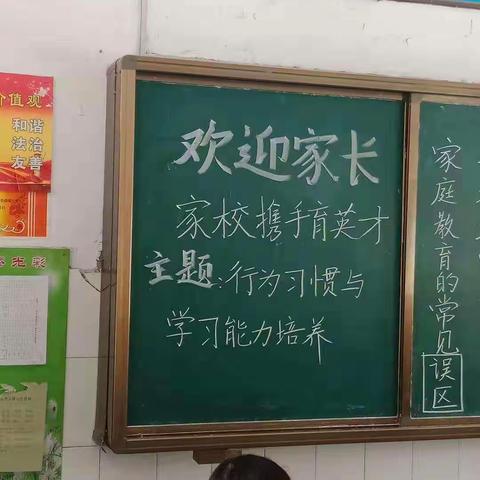 价值观
和谐
法治
友善
光彩
欢迎家长
家校携手育英才
主题:行为习惯与
学习能力培养
家庭教育的常见误区